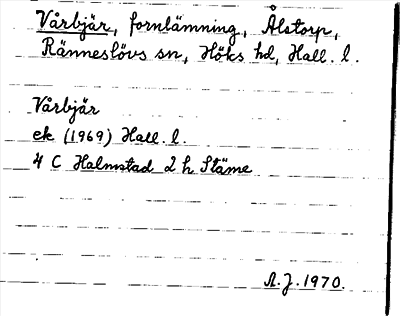 Vårbjär, fornlämning, Ålstorp,
Ränneslövs sn, Höks hd, Hall. l.
Vårbjär
ek (1969) Hall. l.
4 C Halmstad 2 h Stäme
A.J. 1970.